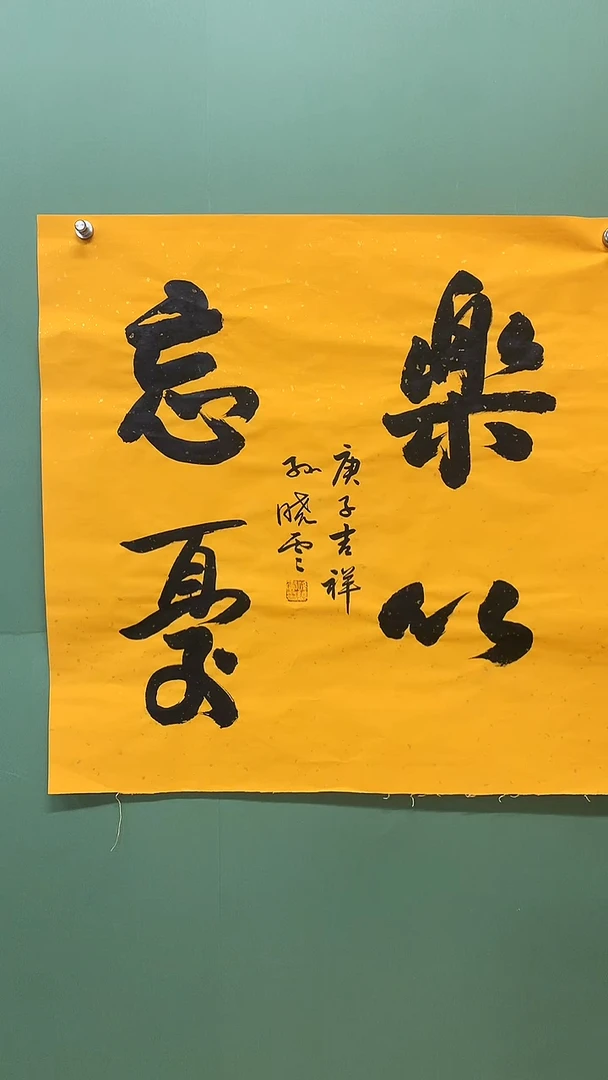 樂以
忘憂
庚子吉祥
孫曉雲